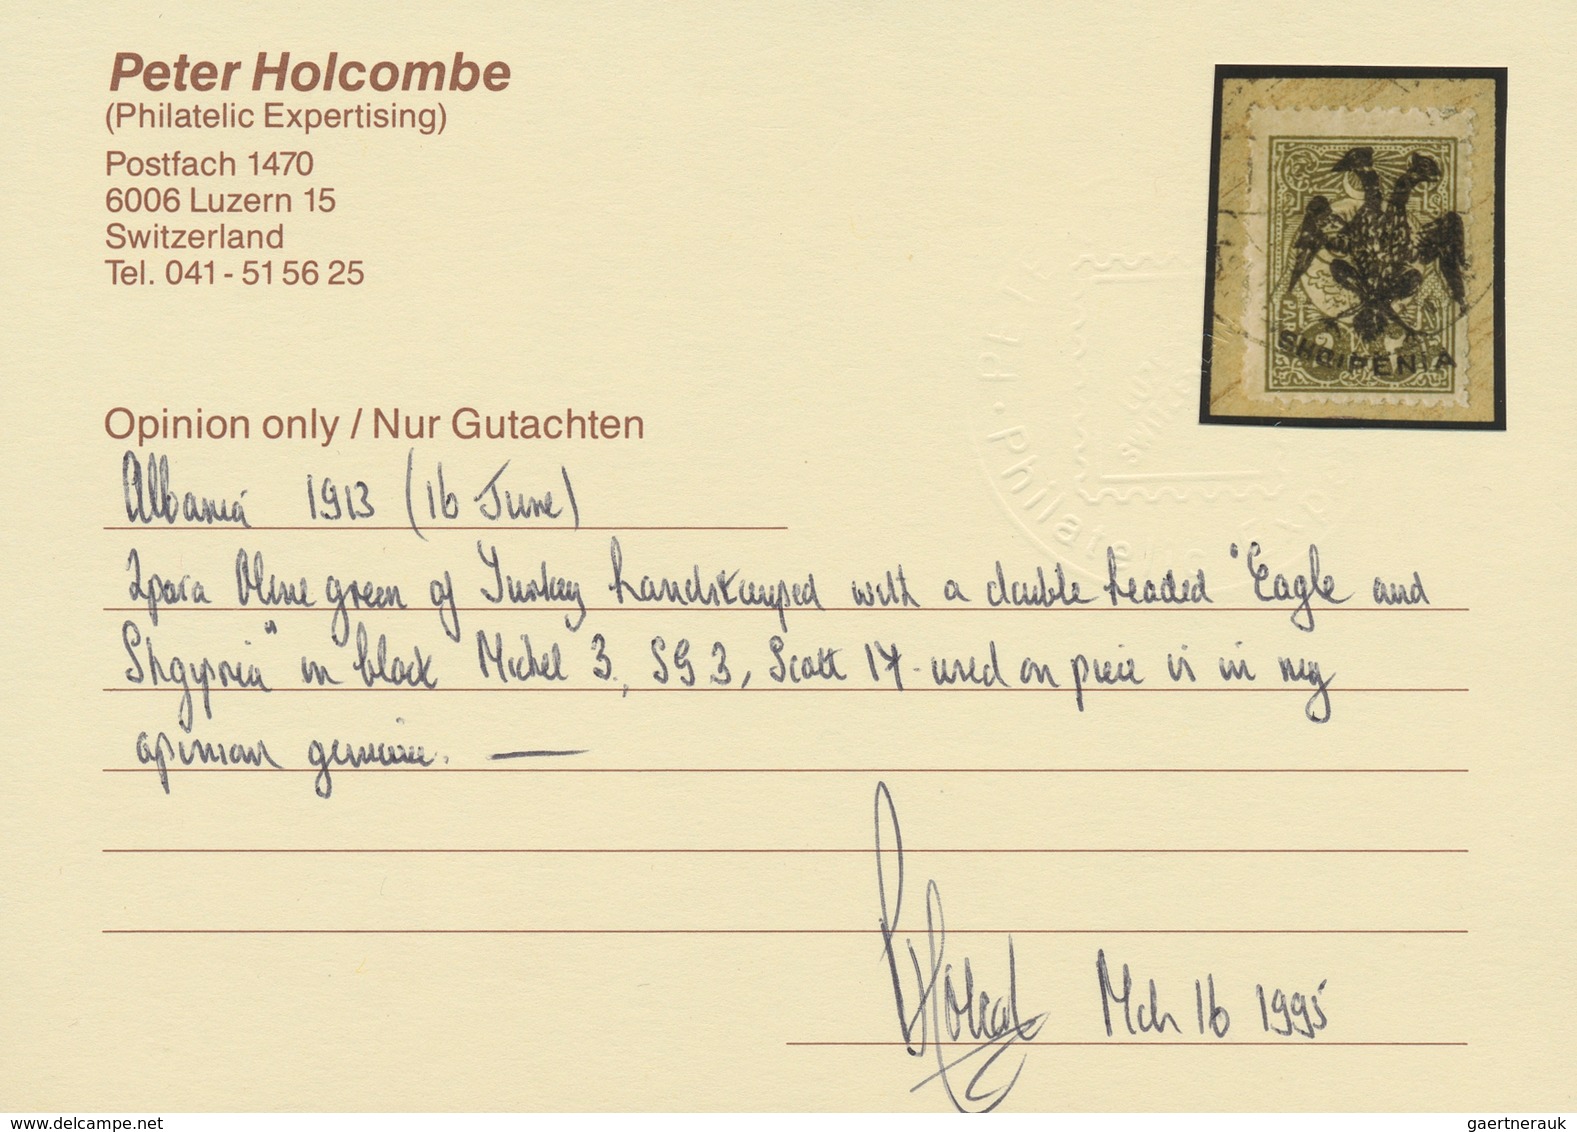 Peter Holcombe
(Philatelic Expertising)
Postfach 1470
6006 Luzern 15
Switzerland
Tel. 041 - 51 56 25
SHQIPENIA
Opinion only / Nur Gutachten
Albania 1913 (16 June)
2para Olive green of Turkey handstamped with a double headed "Eagle and
Shqipnia" in black Michel 3., SG 3, Scott 17 - used on piece is in my
opinion genuine. —
Philatelic Exp
P Holcombe Mch 16 1995
www.delcampe.net
gaertnerauk